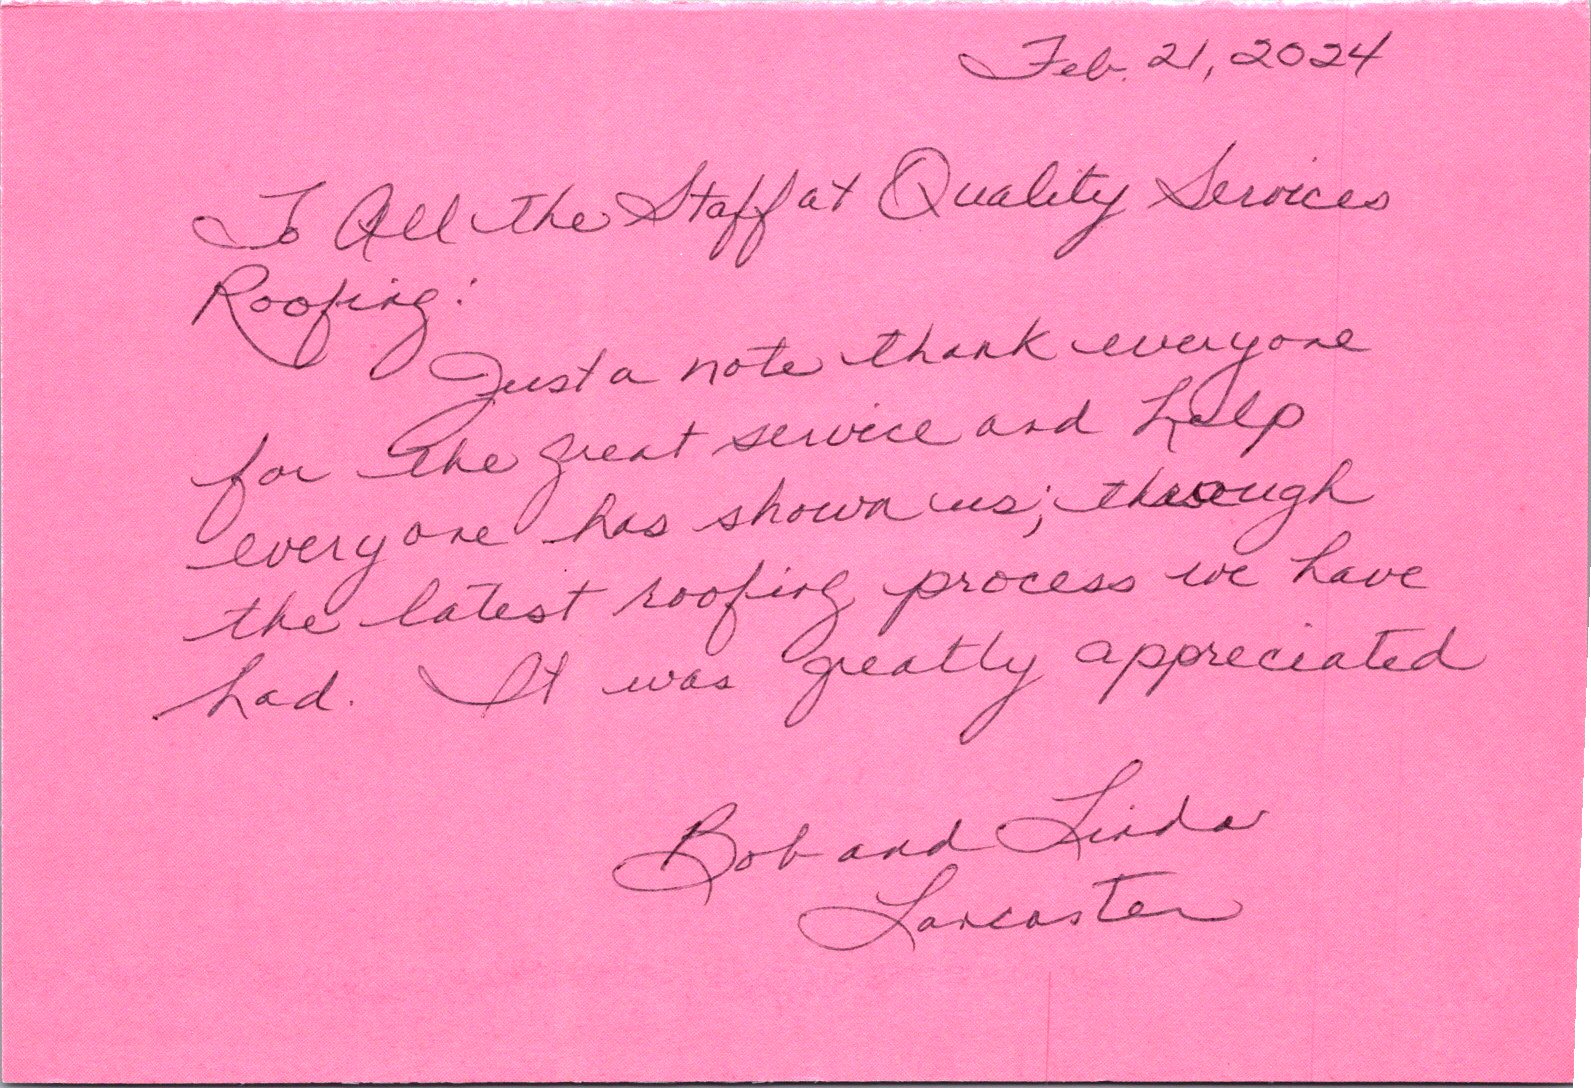 Feb. 21, 2024
To All the Staff at Quality Services
Roofing:
Just a note thank everyone
for the great service and help
everyone has shown us; through
the latest roofing process we have
had. It was greatly appreciated
Bob and Linda
Lancaster